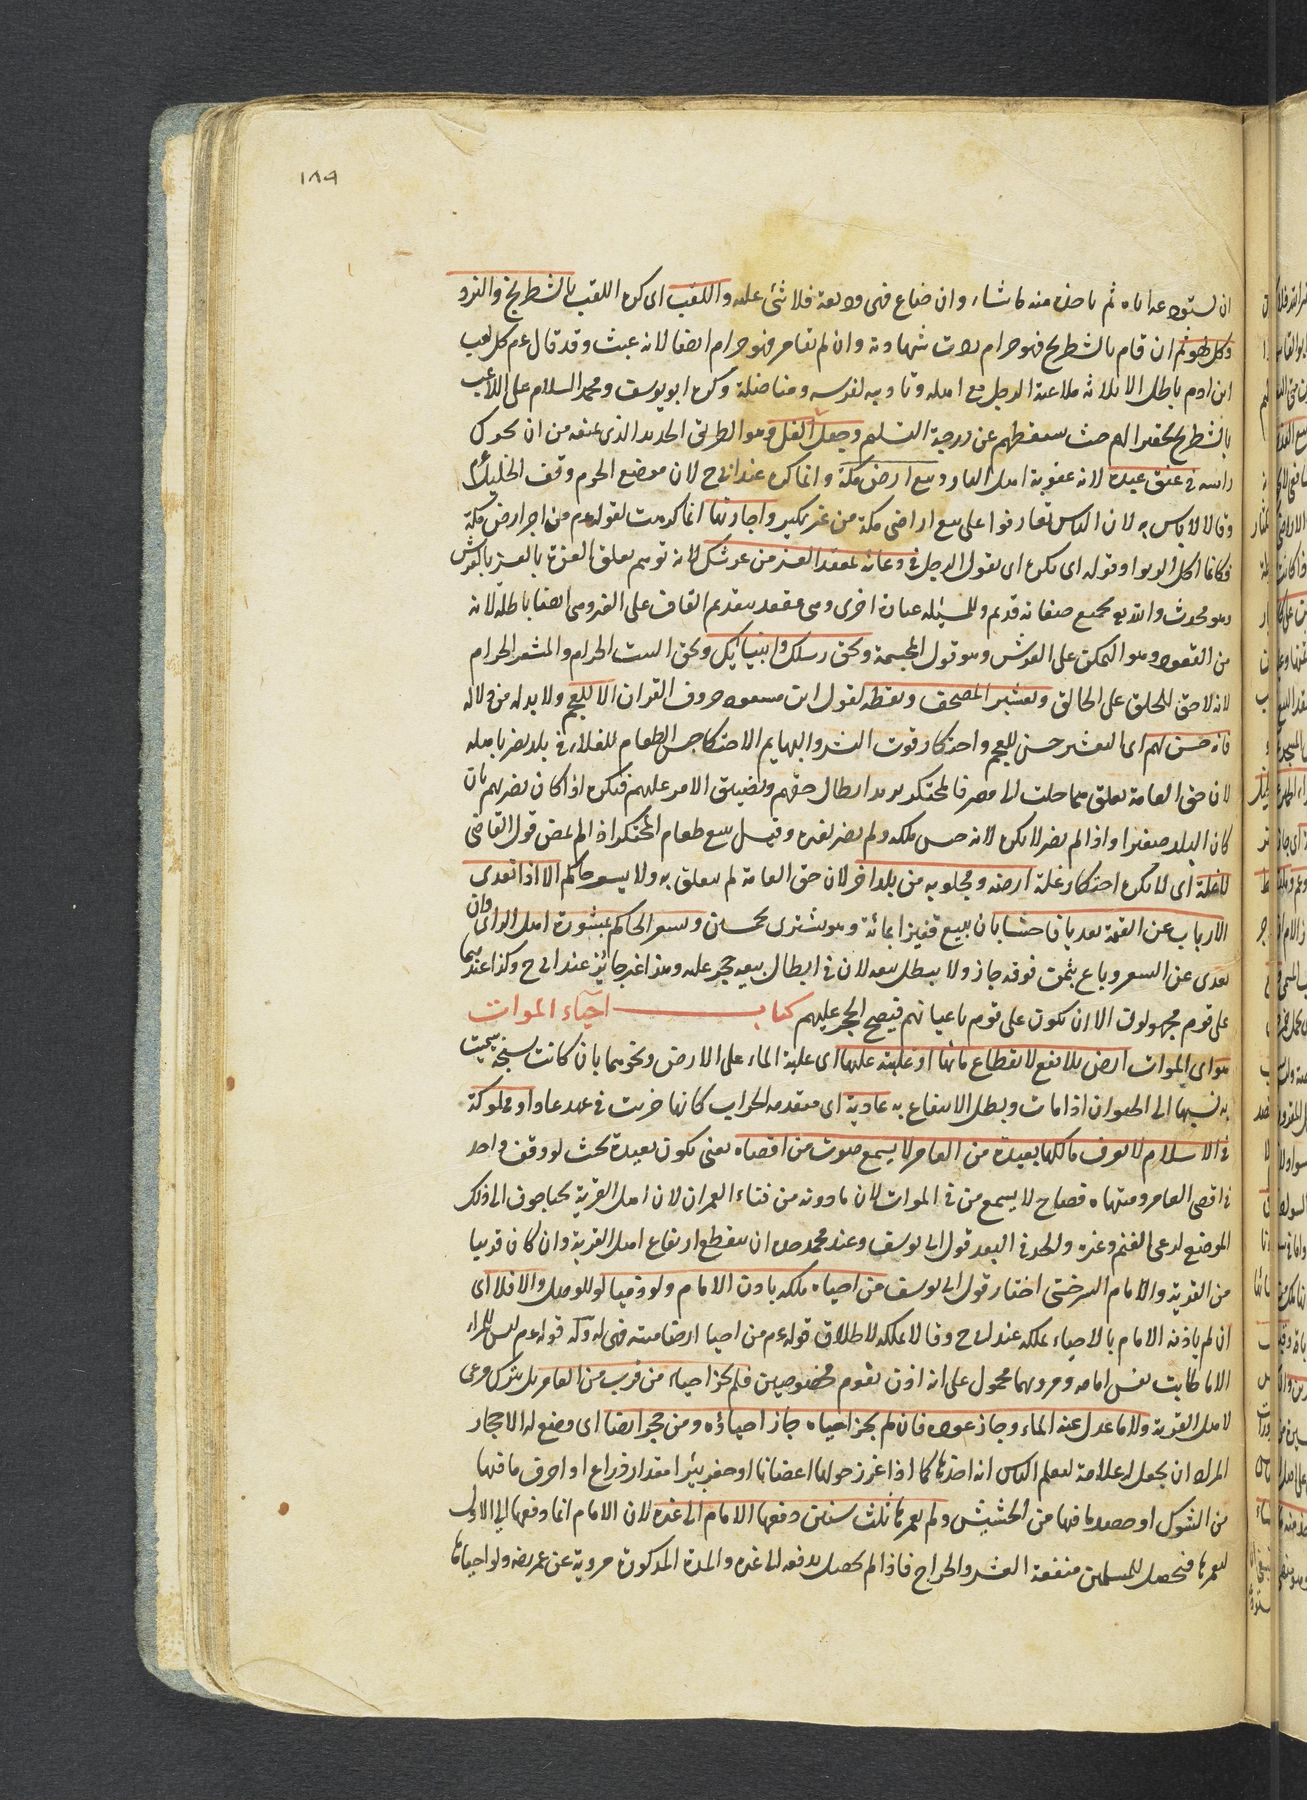 ١٨٩
ان يستودعه اياه ثم ياخذ منه ما شاء وان ضاع فهى وديعة فلا شئ عليه واللعب اى كره اللعب بالشطرنج والنرد
وكل لهو ثم ان قام بالشطرنج فهو حرام يرد شهادته وان لم يقامر فهو حرام ايضا لانه عبث وقد قال عم كل لعب
ابن ادم باطل الا ثلاثة ملاعبة الرجل مع اهله وتاديبه لفرسه ومناضلة وكره ابو يوسف ومحمد السلام على اللاعب
بالشطرنج تحقيرا لهم حيث يسقطهم عن درجة التسليم وجعل الغل وهو الطريق الحديد الذى يمنعه من ان يحرك
راسه فى عنق عبده لانه عقوبة اهل النار وبيع ارض مكة وانما كره عند ابى ح لان موضع الحرم وقف الخليل
وقالا لا باس به لان الناس تعارفوا على بيع اراضى مكة من غير نكير واجارتها انما كرهت لقوله عم من اجر ارض مكة
فكانما اكل الربوا وقوله اى يكره اى يقول الرجل فى دعائه بمقعد العز من عرشك لانه توهم تعلق العزة بالعرش
وهو محدث والله بجميع صفاته قديم وللمسئلة عبارة اخرى وهى مقعد بتقديم القاف على العين وهى ايضا باطلة لانه
من القعود وهو التمكن على العرش وهو قول المجسمة وبحق رسلك وانبيائك وبحق البيت الحرام والمشعر الحرام
لانه لا حق للخلق على الخالق وتعشير المصحف ونقطه لقول ابن مسعود جردوا القران الا للعجم ولا بد له من دلالة
فانه حسن لهم اى التعشير حسن للعجم واحتكار قوت البشر والبهايم الاحتكار حبس الطعام للغلاء فى بلد يضر باهله
لان حق العامة تعلق بما جلب الى مصر فالمحتكر يريد ابطال حقهم وتضييق الامر عليهم فيكره اذا كان يضر بهم بان
كان البلد صغيرا واذا لم يضر لا يكره لانه حبس ملكه ولم يضر بغيره وقيل يبيع طعام المحتكر اذا لم يمض قول القاضى
لا غلة اى لا يكره احتكار غلة ارضه ومجلوبه من بلد اخر لان حق العامة لم يتعلق به ولا يسعر حاكم الا اذا تعدى
الارباب عن القيمة تعديا فاحشا بان يبيع قفيزا بمائة وهو يشترى بخمسين وسعر الحاكم بمشورة اهل الراى وان
تعدى عن السعر وباع بثمن فوقه جاز ولا يبطل بيعه لان فى ابطال بيعه حجر عليه وهذا غير جائز عند ابى ح وكذا عندهما
على قوم مجهولون الا ان يكون على قوم باعيانهم فيصح الحجر عليهم كتاب احياء الموات
هو اى الموات ارض بلا نفع لانقطاع مائها او غلبته عليها اى غلبة الماء على الارض ونحوهما بان كانت سبخة سميت
به تشبيها الى الحيوان اذا مات وبطل الانتفاع به عادية اى متقدمه الخراب كانها خربت فى عهد عاد او مملوكة
فى الاسلام لا يعرف مالكها بعيدة من العامر لا يسمع صوت من اقصاه يعنى يكون بعيدة بحيث لو وقف واحد
فى اقصى العامر ومنتهاه فصاح لا يسمع من فى الموات لان ما دونه من فناء العمران لان اهل القرية يحتاجون الى ذلك
الموضع لرعى الغنم وغيره والحد فى البعد قول ابى يوسف وعند محمد حده ان ينقطع ارتفاع اهل القرية وان كان قريبا
من القرية والامام السرخسى اختار قول ابى يوسف من احياه ملكه باذن الامام ولو ذميا لو للوصل والا فلا اى
ان لم ياذنه الامام بالاحياء يملكه عند ابى ح وقالا يملكه لاطلاق قوله عم من احيا ارضا ميتة فهى له وله قوله عم ليس للمرء
الا ما طابت نفس امامه ومرويهما محمول على انه اذن لقوم مخصوصين فلم يجز احياء من قرب من العامر بل يترك مرعى
لاهل القرية ولا ما عدل عنه الماء وجاز عوده فان لم يجز احياه جاز احياؤه ومن حجر ارضا اى وضع له الاحجار
المراد ان يجعل له علامة ليعلم الناس انه اخذها كما اذا غرز حولها اغصانا او حفر بئرا مقدار ذراع او احرق ما فيها
من الشوك او حصد ما فيها من الحشيش ولم يعمرها ثلث سنين دفعها الامام الى غيره لان الامام انما دفعها الى الاول
ليعمرها فيحصل للمسلمين منفعة العشر والخراج فاذا لم يحصل يدفعه الى غيره والمدة المذكورة مروية عن عمر رضه ولو احياها